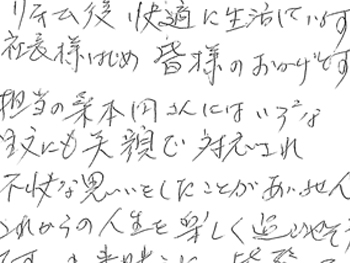 リフォーム後 快適に生活しています
社長様はじめ 皆様のおかげです
担当の 本田さんには いろいろな
注文にも 笑顔で 対応され
不快な思いをしたことがありません
これからの人生を 楽しく 過ごせそう
です